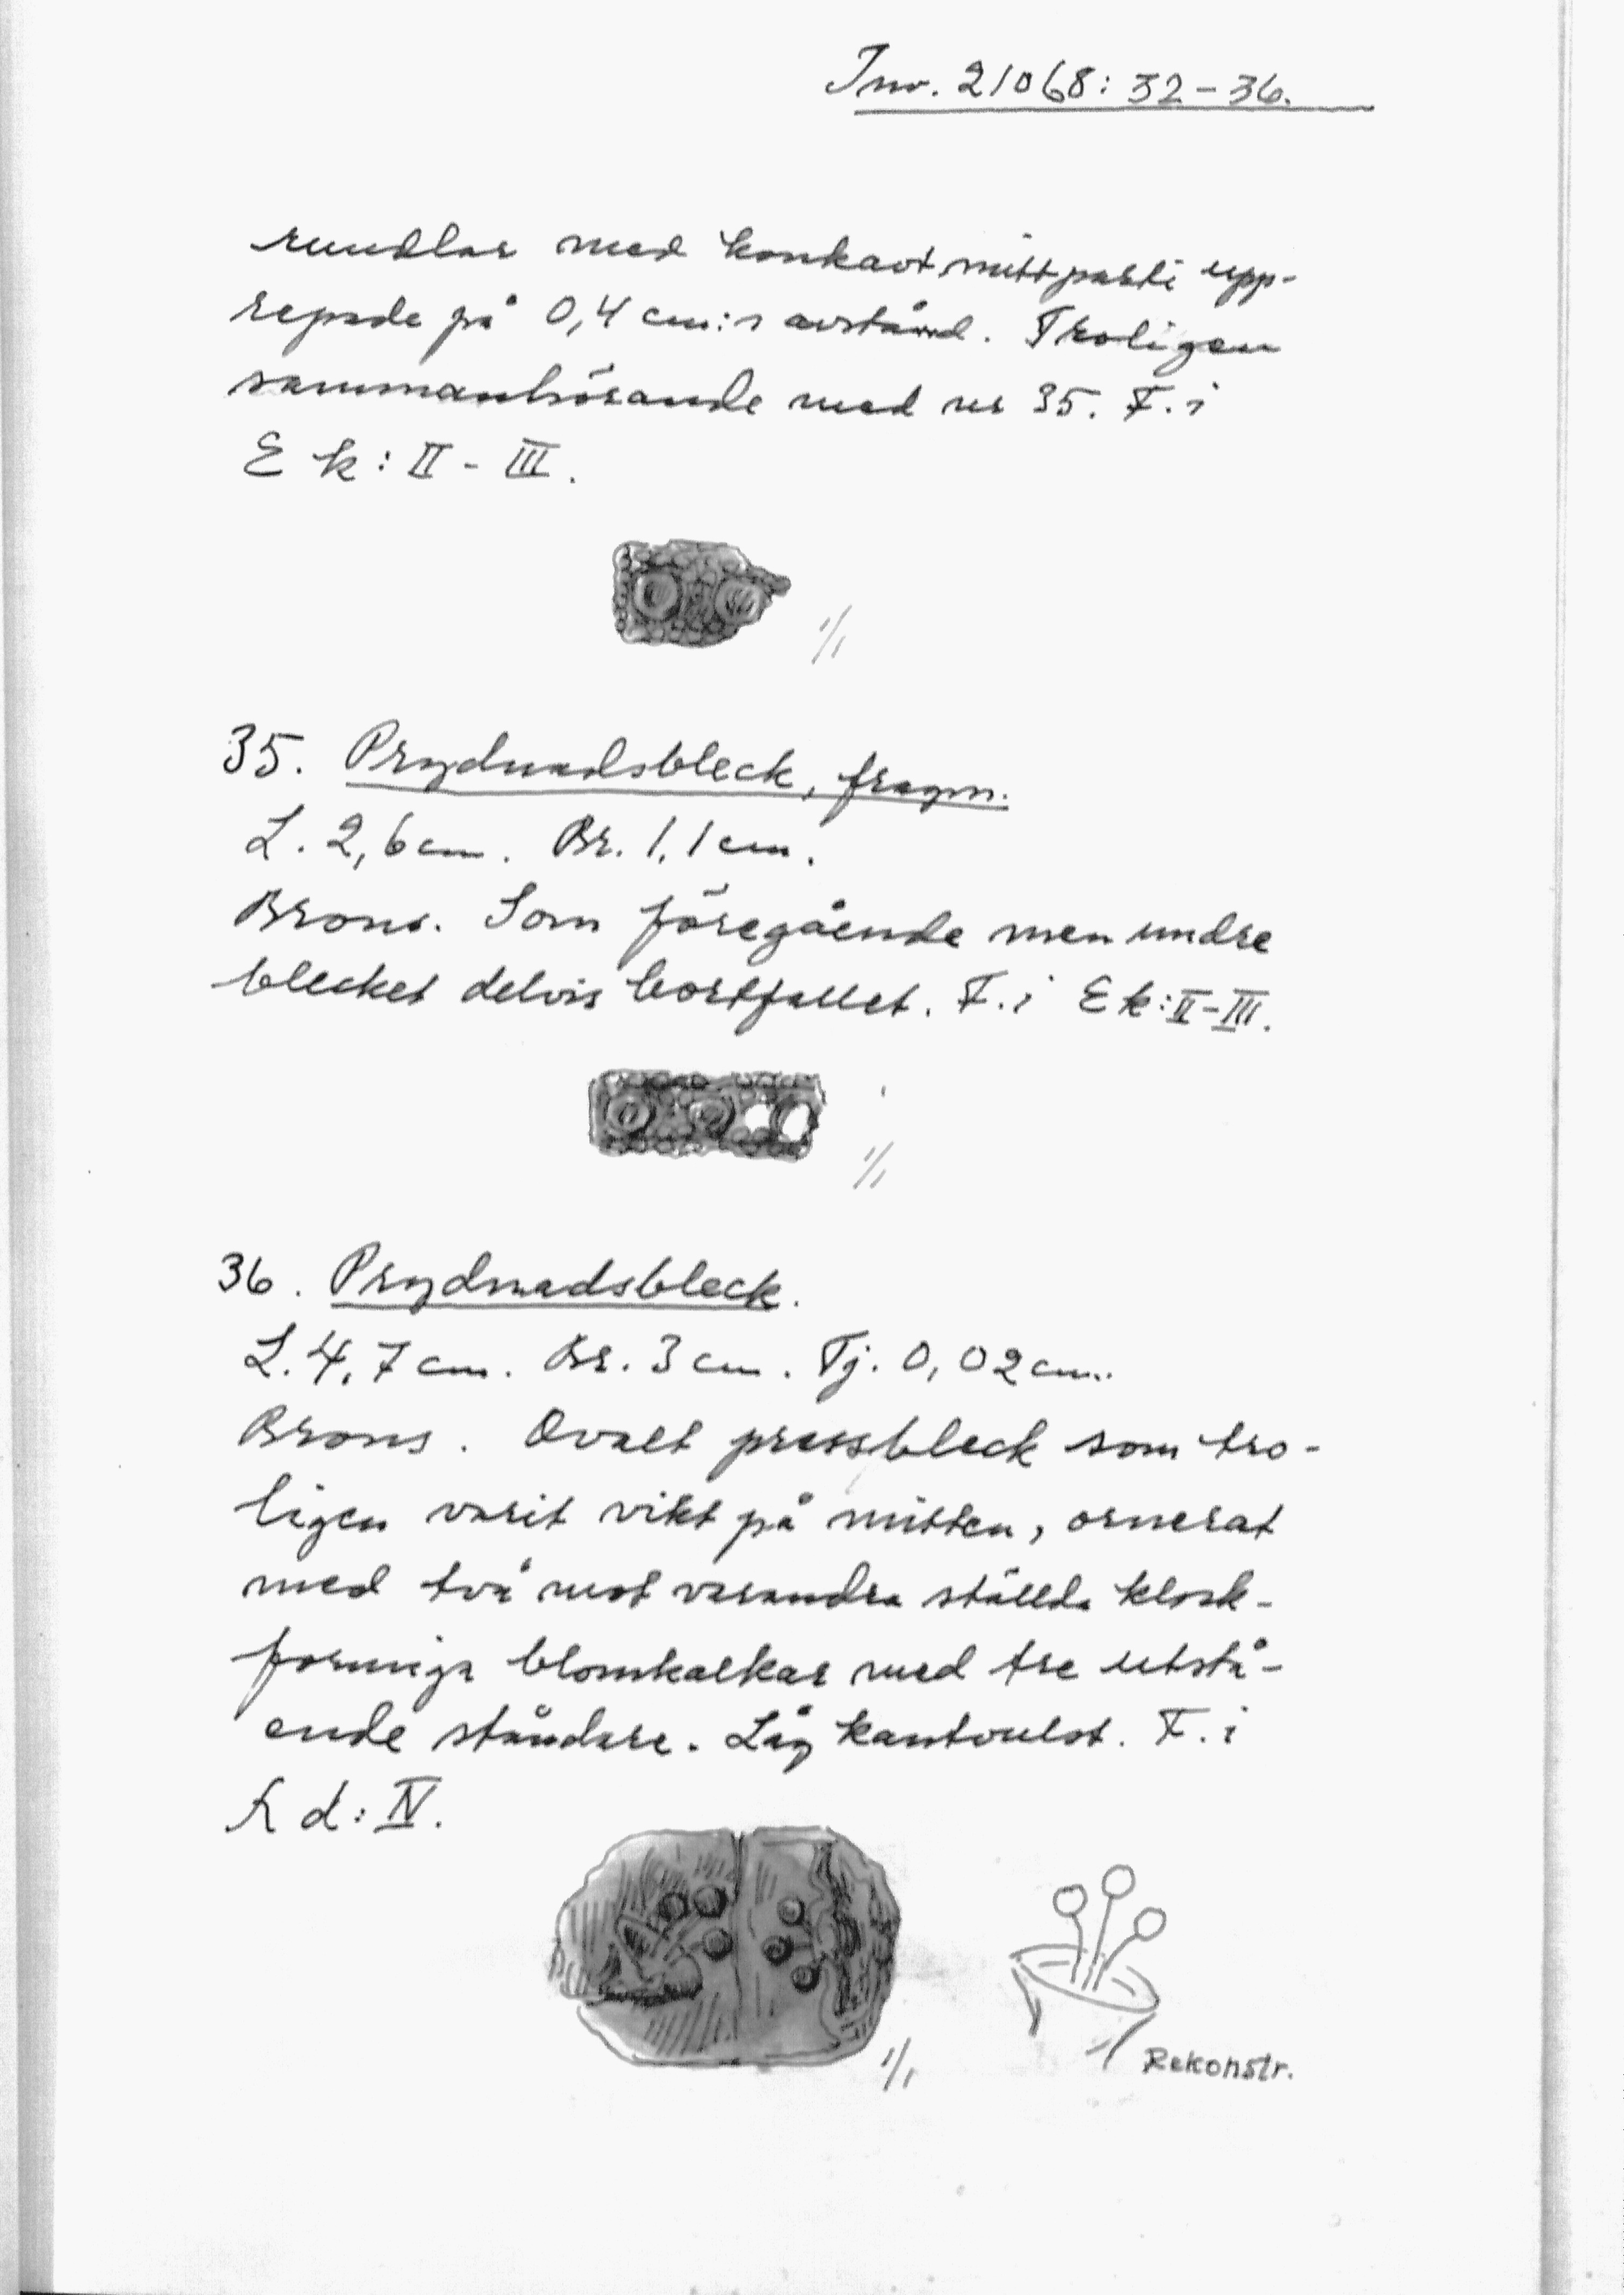 Inv. 21068: 32-36.
rundlar med konkavt mittparti upp-
repade på 0,4 cm:s avstånd. Troligen
sammanhörande med nr 35. F. i
E k: II - III.
1/1
35. Prydnadsbleck, fragm.
L. 2,6 cm. Br. 1,1 cm.
Brons. Som föregående men undre
blecket delvis bortfallet. F. i E k: II-III.
1/1
36. Prydnadsbleck.
L. 4,7 cm. Br. 3 cm. Tj. 0,02 cm.
Brons. Ovalt pressbleck som tro-
ligen varit vikt på mitten, ornerat
med två mot varandra ställda klock-
formiga blomkalkar med tre utstå-
ende ståndare. Låg kantvulst. F. i
d: IV.
1/1
Rekonstr.